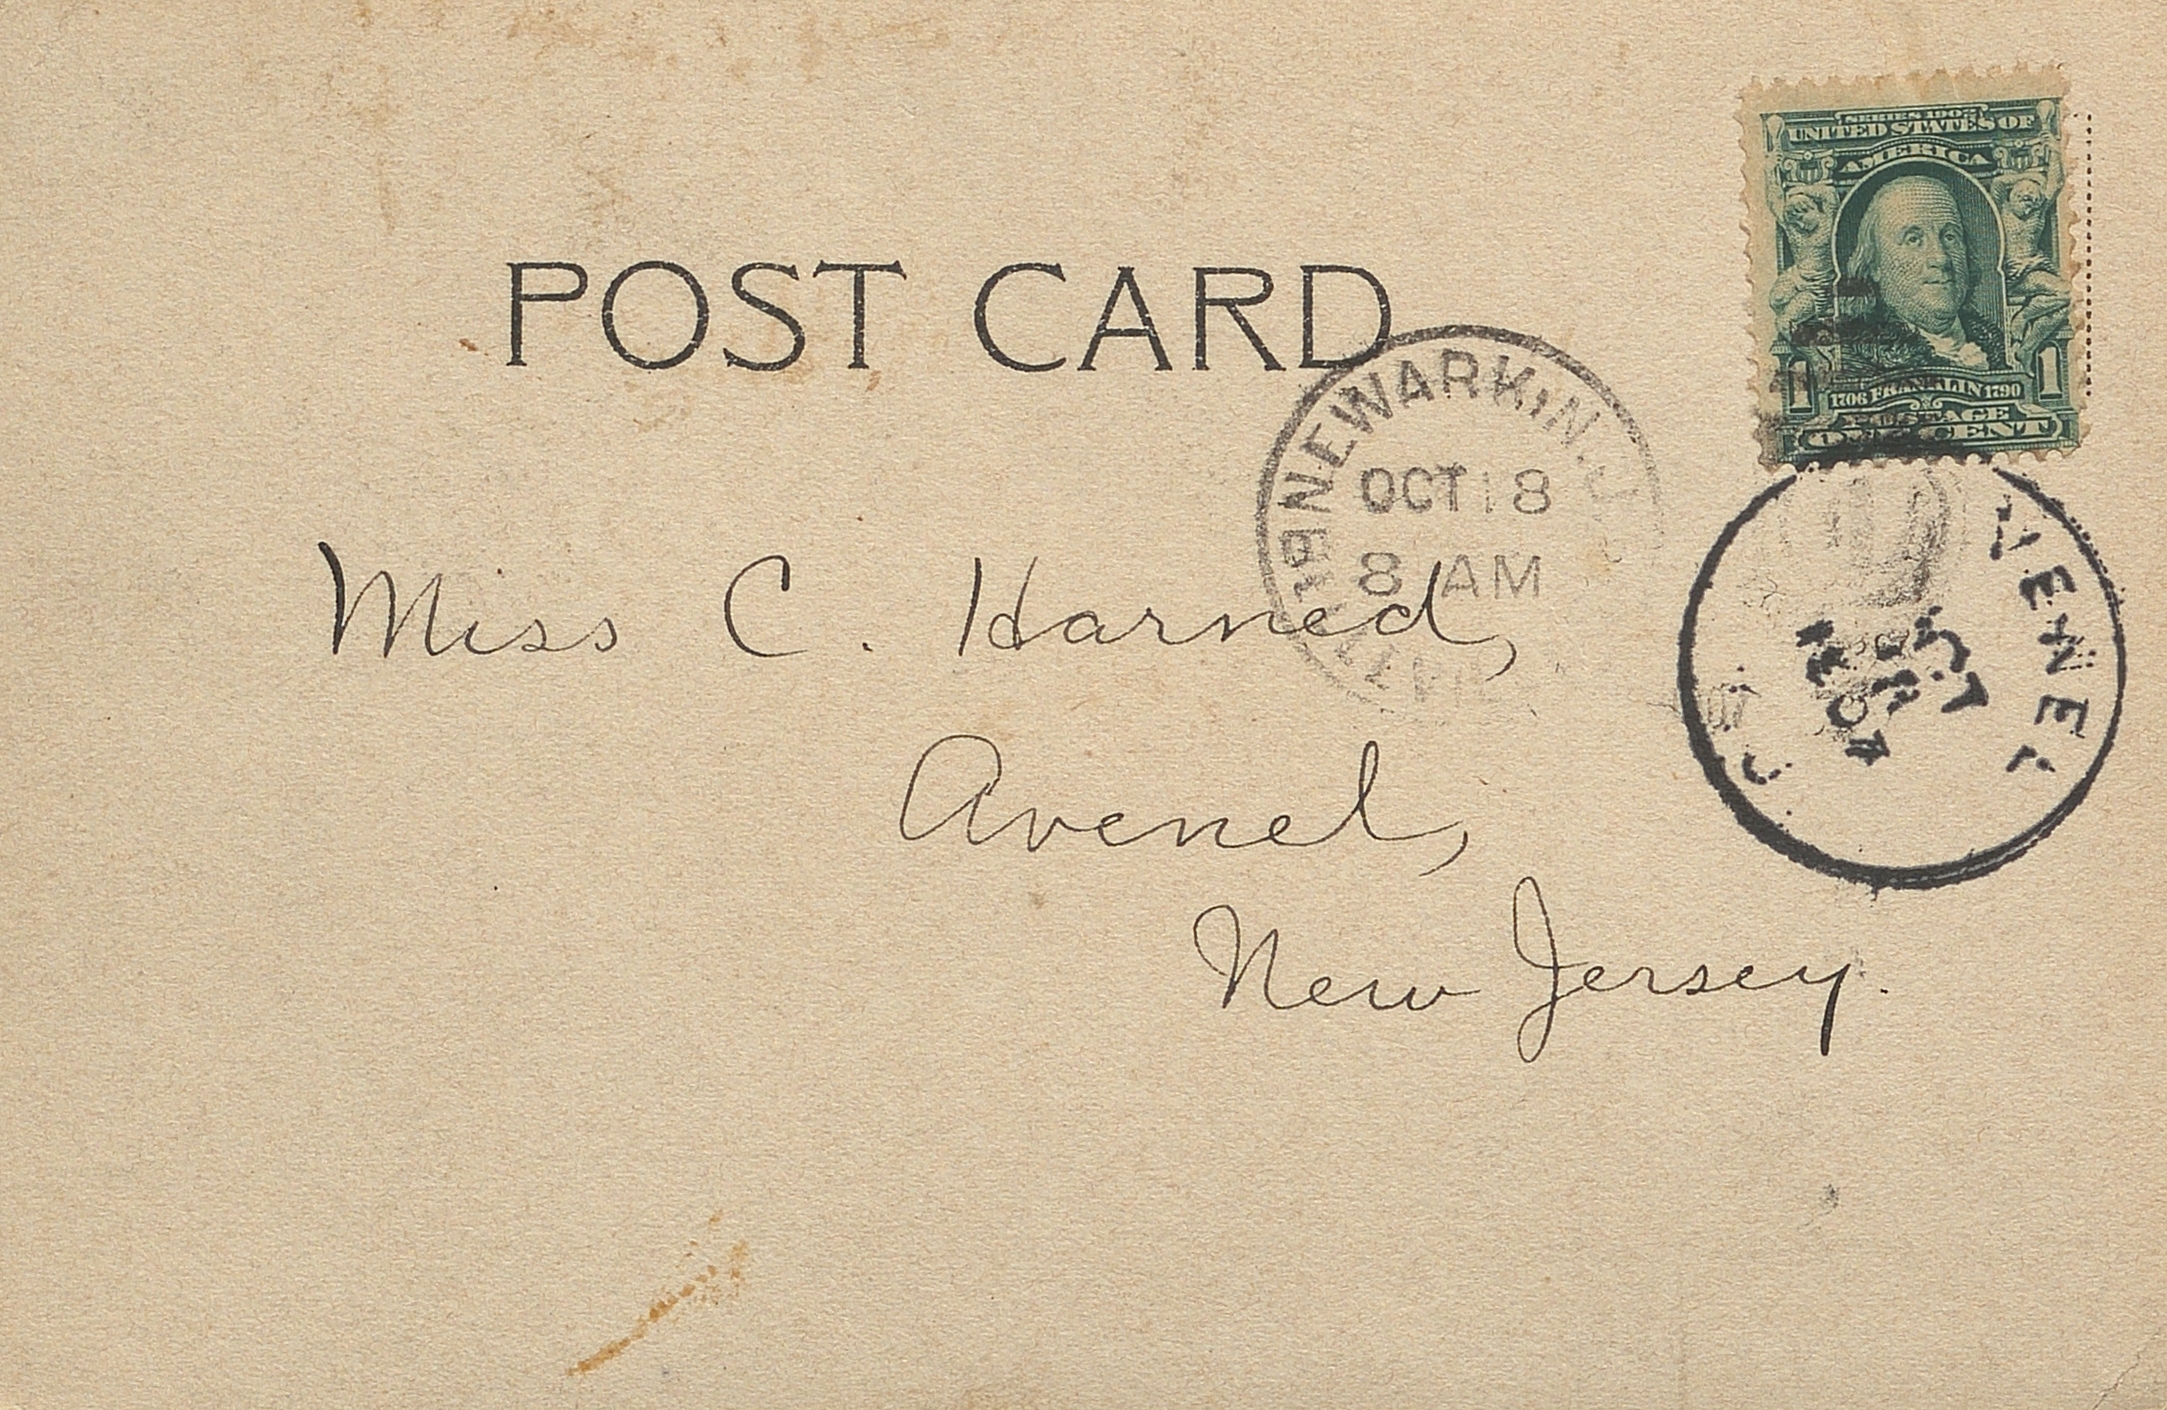 SERIES 1902
UNITED STATES OF
AMERICA
1 1706 FRANKLIN 1790 1
POSTAGE
ONE CENT
POST CARD
NEWARK, N.J.
OCT 18
8 AM
AVENEL
OCT
Miss C. Harned,
Avenel,
New Jersey.